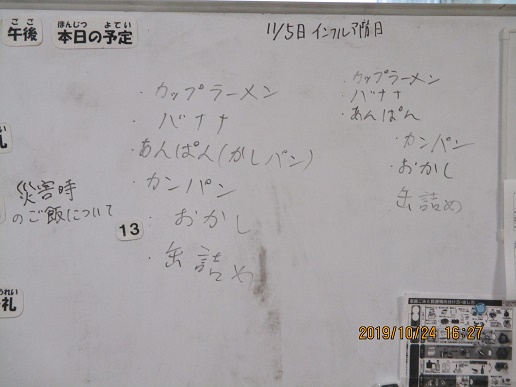 ごご
午後
ほんじつ よてい
本日の予定
11/5日 インフル予防日
・カップラーメン
・バナナ
・あんぱん(かしパン)
・カンパン
・おかし
・缶詰め
・カップラーメン
・バナナ
・あんぱん
・カンパン
・おかし
缶詰め
災害時
のご飯について
13
れい
礼
2019/10/24 16:27